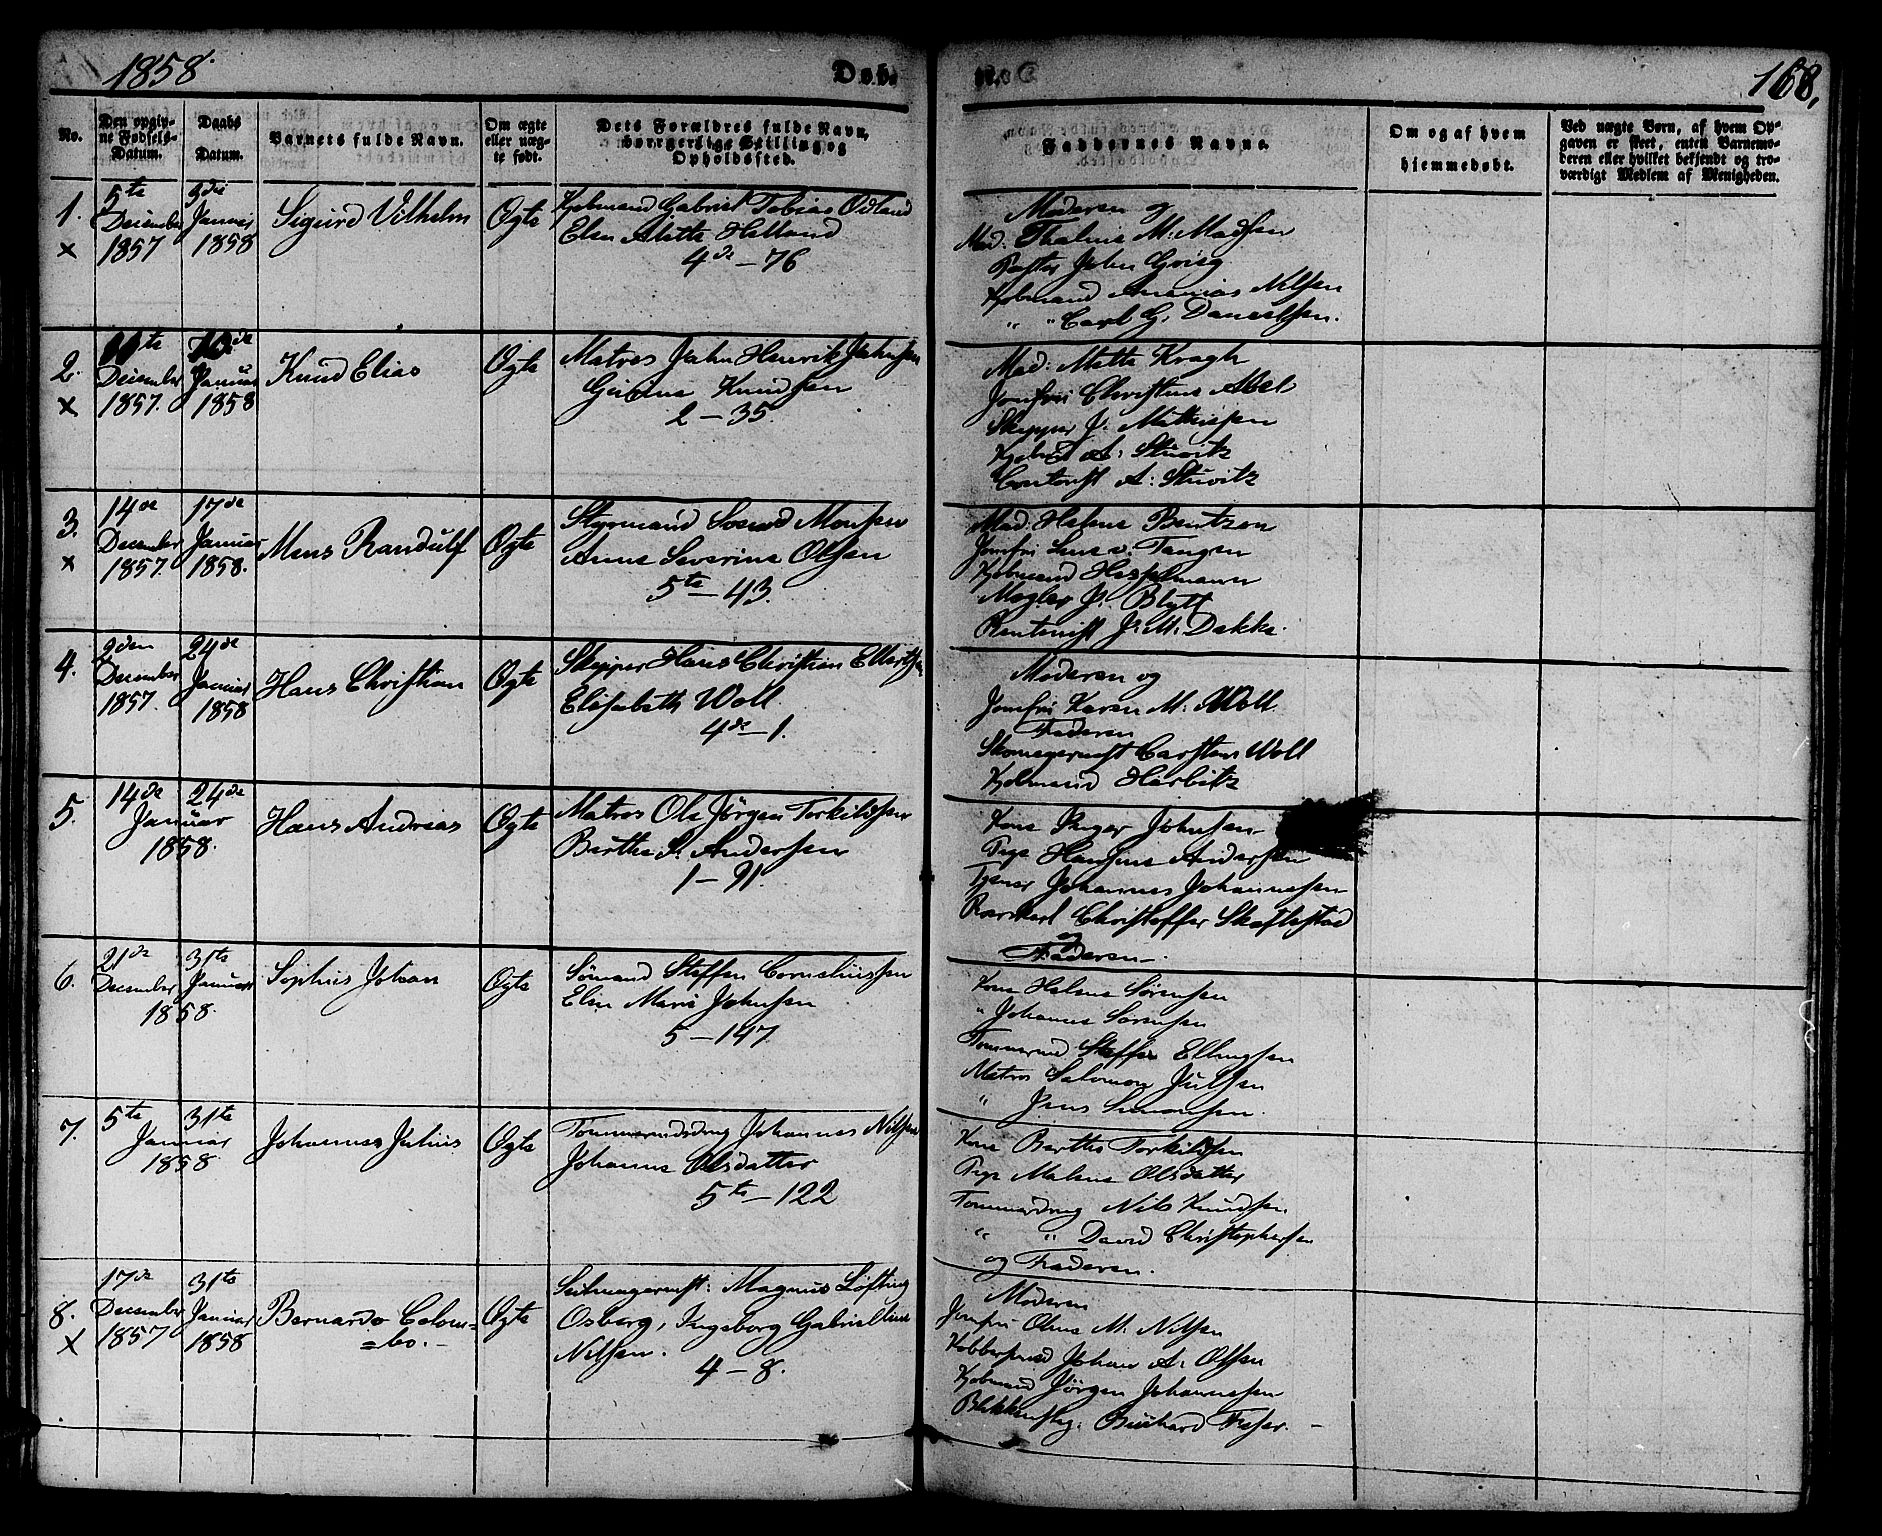 1858.
Døb.
168,
No.
Den opgiv-
ne Fødsels-
Datum.
Daabs
Datum.
Barnets fulde Navn.
Om ægte
eller uæg-
te født.
Dets Forældres fulde Navn,
borgerlige Stilling og
Opholdssted.
Faddernes Navne.
Om og af hvem
hjemmedøbt.
Ved uægte Børn, af hvem Op-
gaven er skeet, enten Barnemo-
deren eller hvilket bekjendt og tro-
værdigt Medlem af Menigheden.
1.
×
5te
December
1857
3die
Januar
1858
Sigurd Vilhelm
Ægte
Kjøbmand Gabriel Tobias Ødland
Elen Alette Helland
4de – 76
Moderen og
Mad: Thalena M: Madsen
Pastor John Grieg
Kjøbmand Ananias Nilsen
" " Carl G. Danielsen.
2.
×
11te
December
1857.
10de
Januar
1858
Knud Elias
Ægte
Matros John Henrik Johnsen
Knudsen
2 – 35.
Mad: Mette Kragh
Jomfru Christine Abel
Skipper J. Mathisen
Kjøbmd A: Stuwitz
Contorist A: Stuwitz
3.
×
14de
December
1857.
17de
Januar
1858.
Mons Randulf
Ægte
Styrmand Monsen
Anne Severine Olsen
5te – 43.
Mad: Helene Bentzen
Jomfru Lene v. Tangen
Kjøbmand Hesselmann
Mægler J. Blytt
Rentenist J: M: Dekke.
4.
2den
December
1857.
24de
Januar
1858
Hans Christian
Ægte
Skipper Hans Christian Ellertsen
Elisabeth Woll.
4de – 1.
Moderen og
Jomfru Karen M. Woll
Faderen
Skomagersvst Carsten Woll
Kjøbmand Herbitz
5.
14de
Januar
1858.
24de
Hans Andreas
Ægte
Matros Ole Jörgen Torkildsen
Berthe S. Andersen
1 – 91.
Kone Inger Johnsen
Pige Hansine Andersen
Tjener Johannes Johannesen
Christoffer Skaftestad
og
Faderen.
6.
21de
December
1858.
31te
Januar
Sophus Johan
Ægte
Sömand Steffen Corneliussen
Elen Marie Johnsen
5 – 147.
Kone Helene Sørensen
" Johanne Sørensen
Tømmermd Steffen Ellingsen
Matros Salomon Julsen
" Jens Simonsen.
7.
5te
Januar
1858.
31te
Johannes Julius
Ægte
Tømmermdsdrng Johannes Nilsen
Johanne Olsdatter
5te – 122
Kone Berthe Torkildsen
Pige Malene Olsdatter
Tømmerdrng Nils Knudsen
" " David Christophersen
og Faderen.
8.
×
17de
December
1857
31te
Januar
1858
Bernardo Colom=
=bo.
Ægte
Seilmagersvst: Magnus Løfting
Osberg, Ingeborg Gabrielline
Nilsen.
4 – 8.
Moderen
Jomfru Oline M. Nilsen
Kobbersmed Johan A: Olsen
Kjøbmand Jørgen Johannesen
Buchard